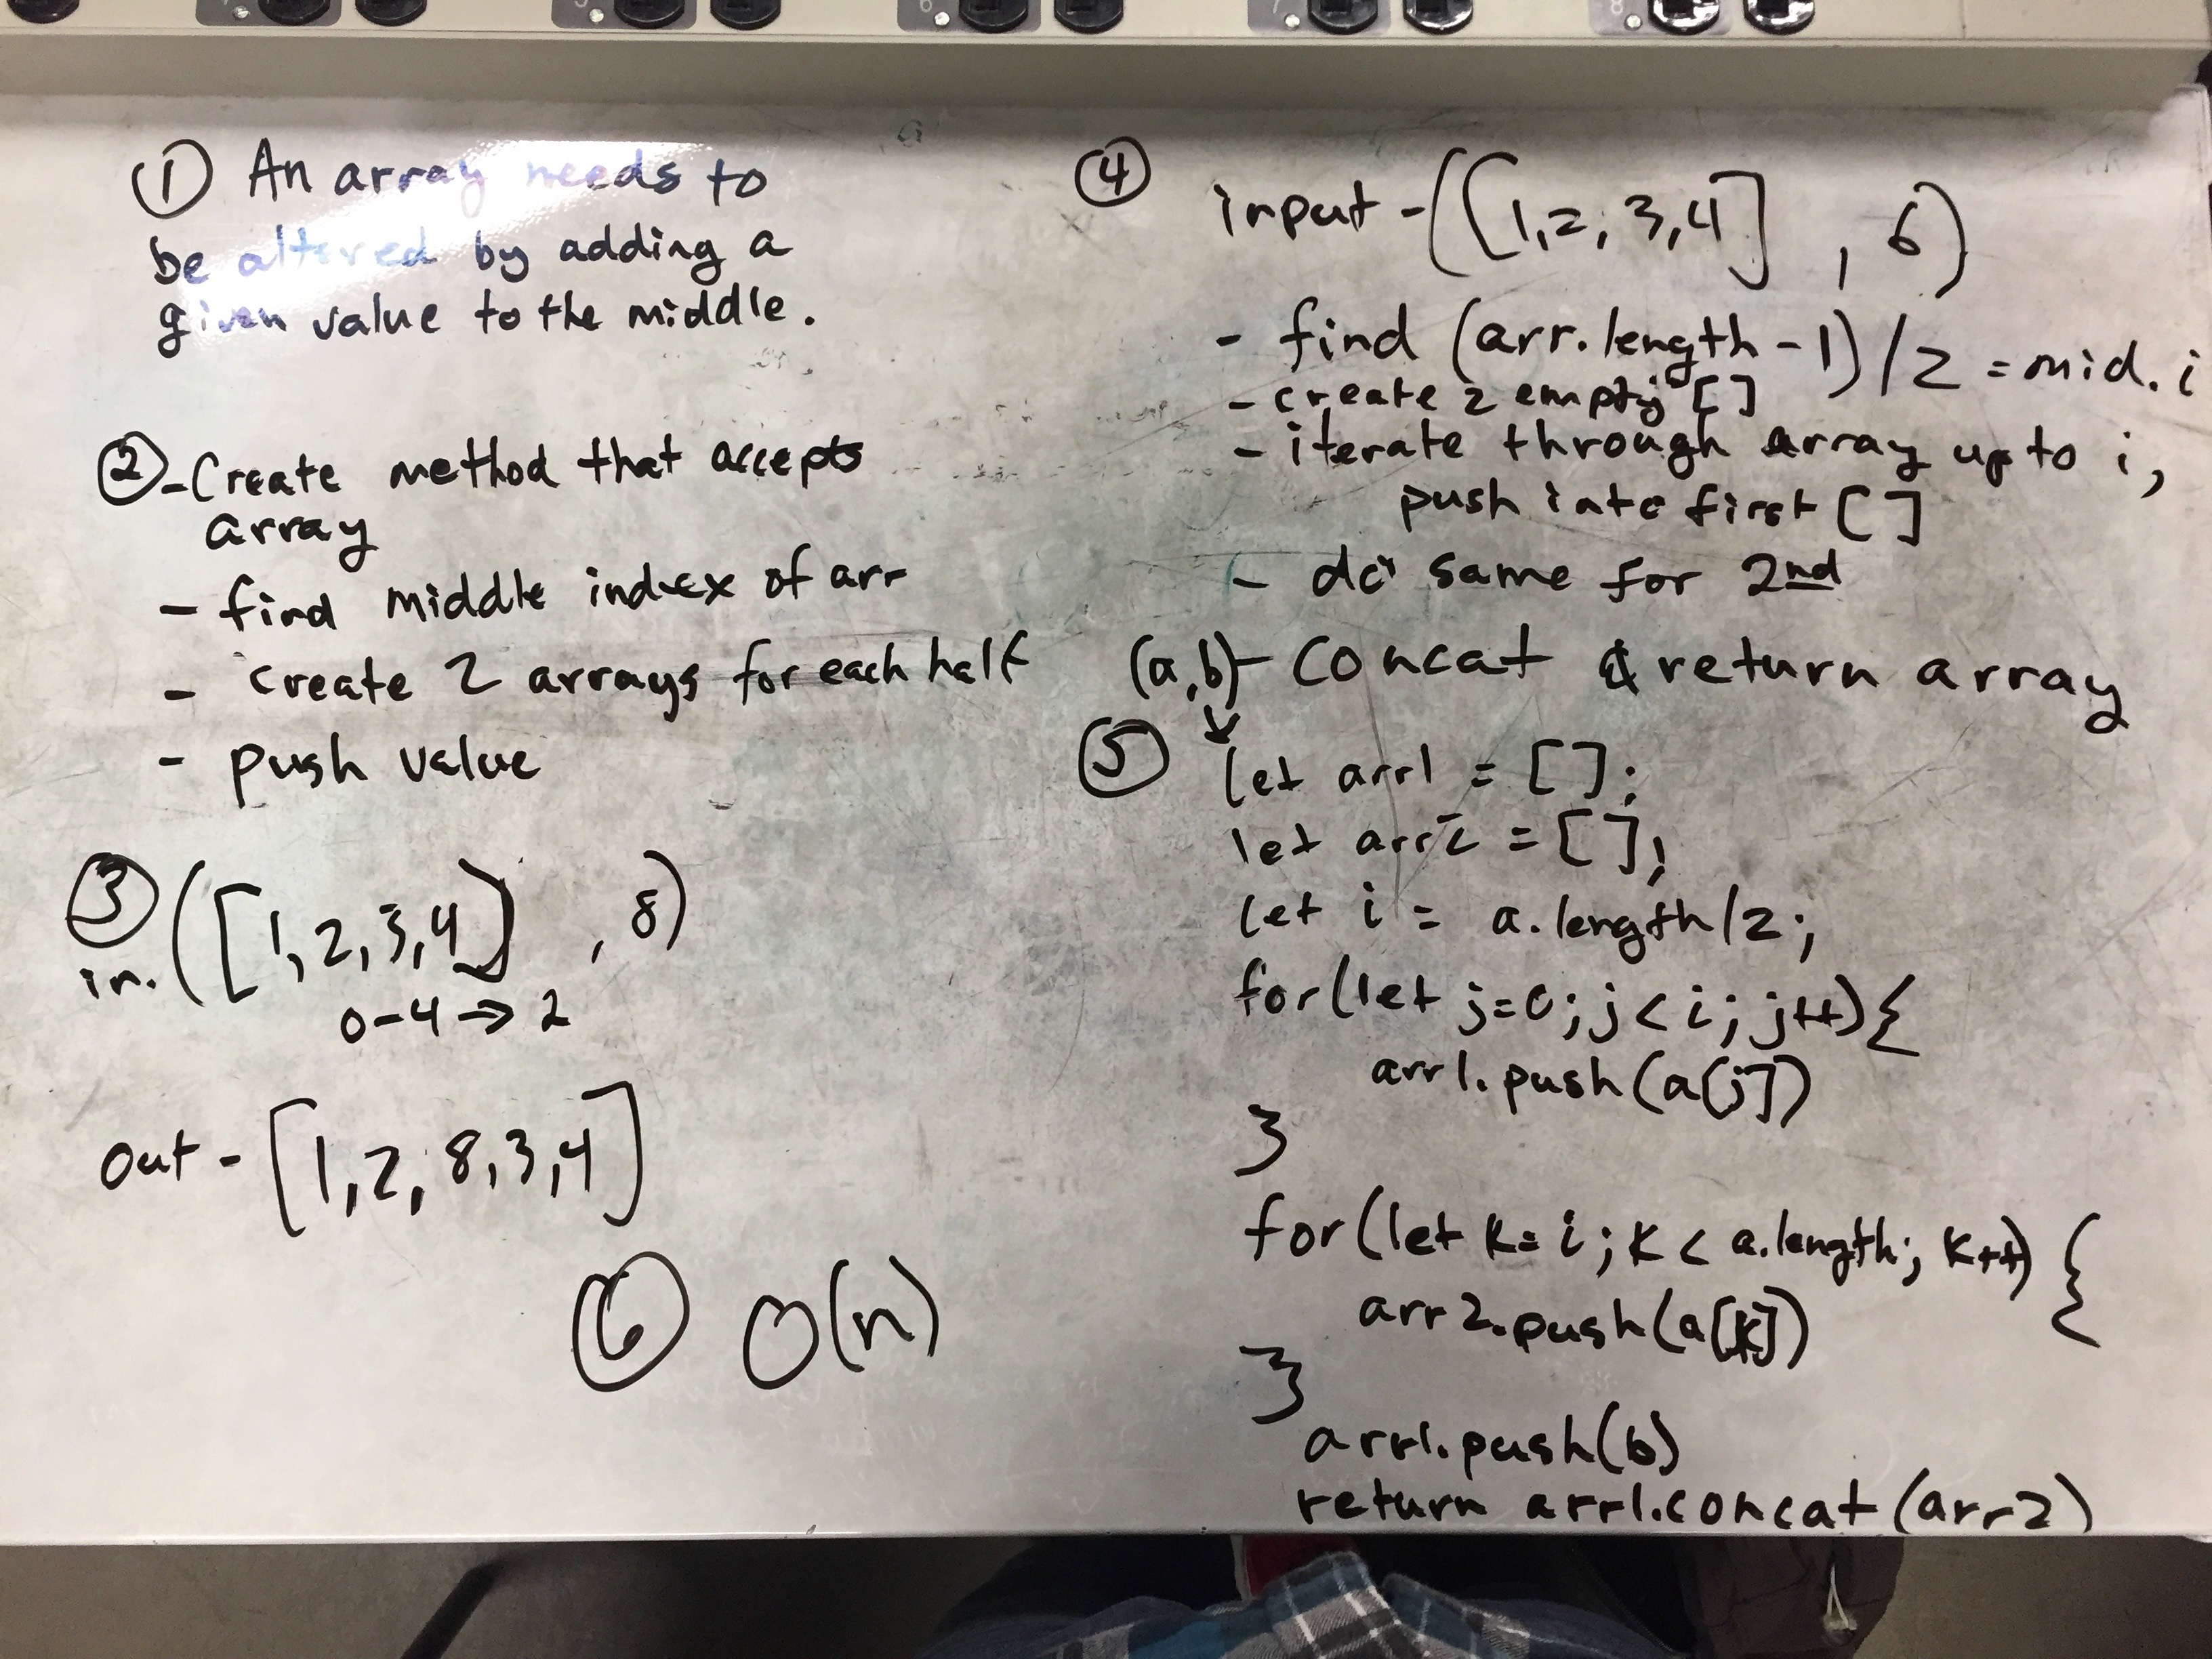 ① An array needs to
be altered by adding a
given value to the middle.
② - Create method that accepts
array
- find middle index of arr
- create 2 arrays for each half
- push value
③
in. ([1,2,3,4] , 8)
0-4 → 2
out - [1,2,8,3,4]
⑥ O(n)
④ input - ([1,2,3,4] , 6)
- find (arr.length-1)/2 = mid. i
- create 2 empty []
- iterate through array up to i,
push into first []
- do same for 2nd
(a,b) - concat & return array
⑤ ↓
let arr1 = [];
let arr2 = [];
let i = a.length/2;
for(let j=0; j<i; j++){
arr1.push(a[j])
}
for(let k=i; k < a.length; k++) {
arr2.push(a[k])
}
arr1.push(b)
return arr1.concat(arr2)